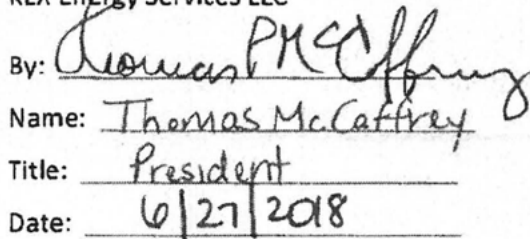 REX Energy Services LLC
By: Thomas P McCaffrey
Name: Thomas McCaffrey
Title: President
Date: 6/27/2018